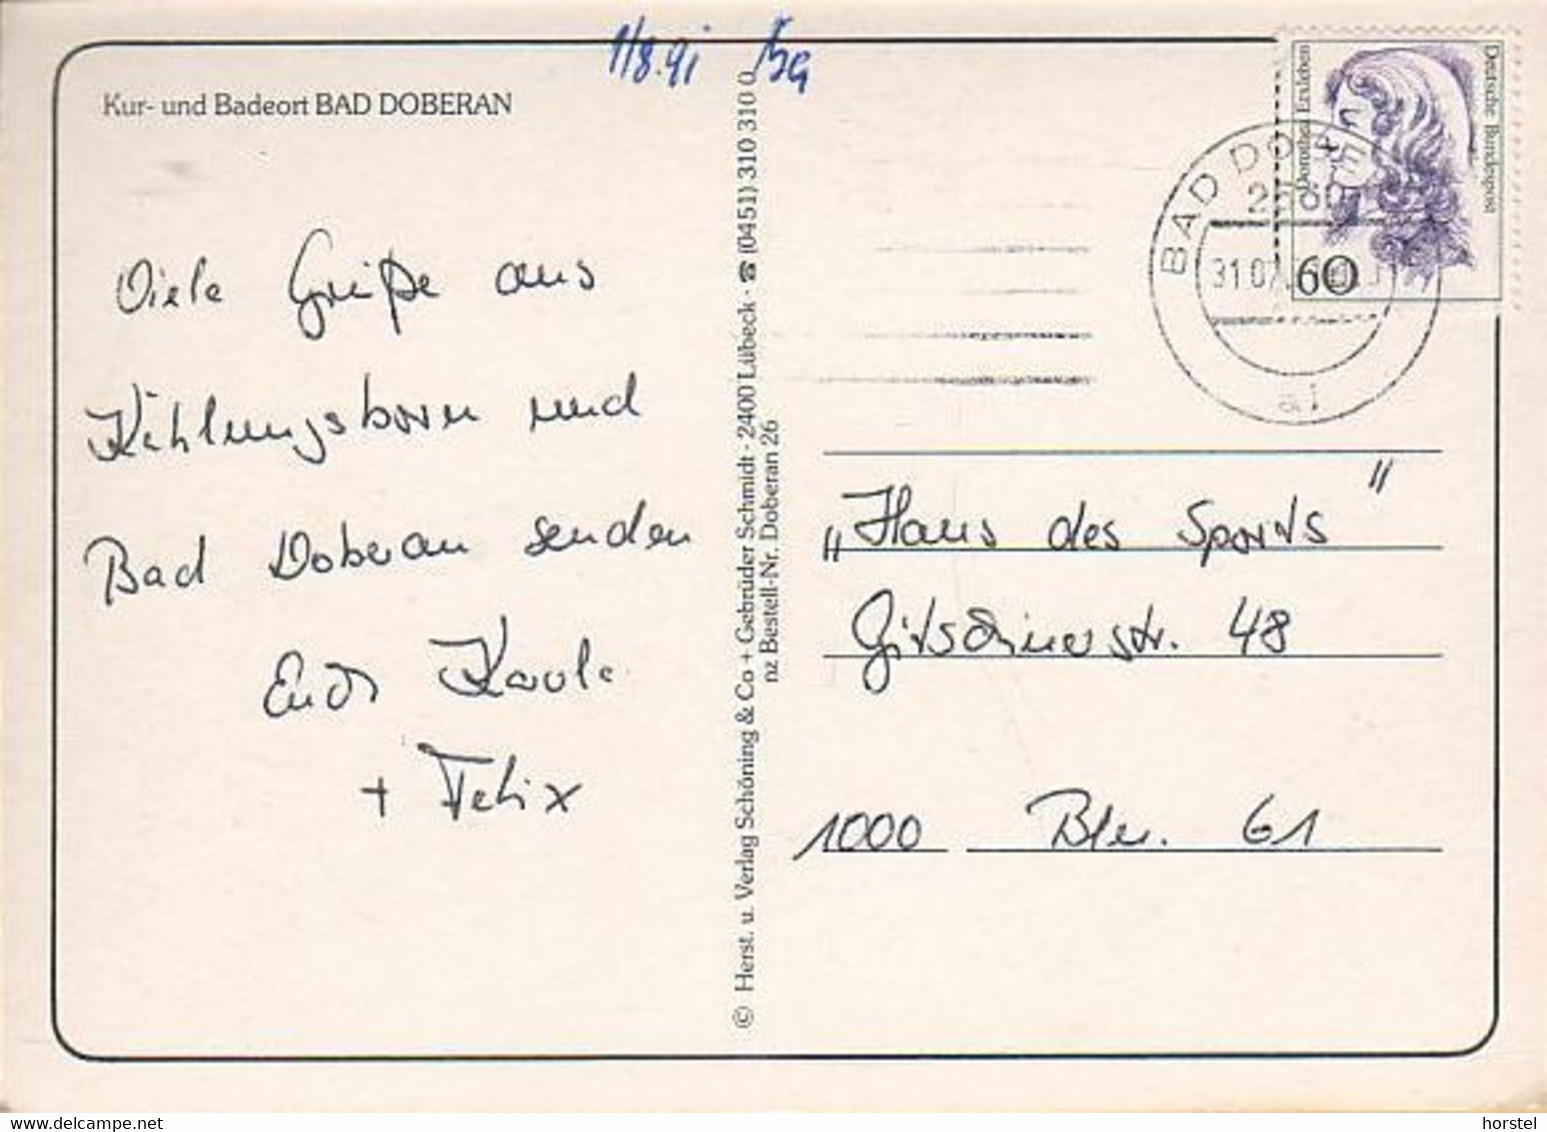 1/8.91 BG
Kur- und Badeort BAD DOBERAN
Viele Grüße aus
Kühlungsborn und
Bad Doberan senden
Euch Karola
+ Felix
© Herst. u. Verlag Schöning & Co + Gebrüder Schmidt · 2400 Lübeck · ☎ (0451) 310 310 0
nz Bestell-Nr. Doberan 26
Deutsche Bundespost
Dorothea Erxleben
60
BAD DOBERAN
31.07.
a1
„Haus des Sports"
Gitschinerstr. 48
1000 Bln. 61
horstel